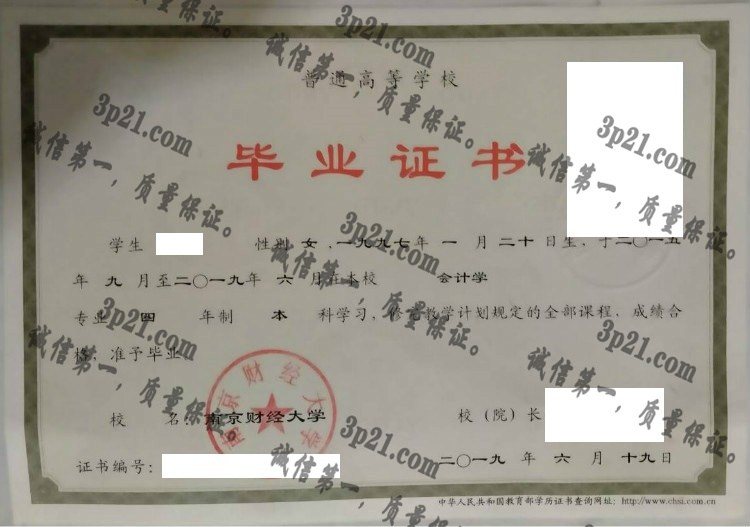 普通高等学校
毕业证书
学生 性别 女,一九九七年 一 月 二十 日生,于二〇一五
年 九 月至二〇一九年 六 月在本校 会计学
专业 四 年制 本 科学习,修完教学计划规定的全部课程,成绩合
格,准予毕业
校 名:南京财经大学
校(院)长
证书编号:
二〇一九 年 六 月 十九日
南京财经大学
中华人民共和国教育部学历证书查询网址:http://www.chsi.com.cn
3p21.com
诚信第一,质量保证。
3p21.com
诚信第一,质量保证。
3p21.com
诚信第一,质量保证。
3p21.com
诚信第一,质量保证。
3p21.com
诚信第一,质量保证。
3p21.com
诚信第一,质量保证。
3p21.com
诚信第一,质量保证。
3p21.com
诚信第一,质量保证。
质量保证。